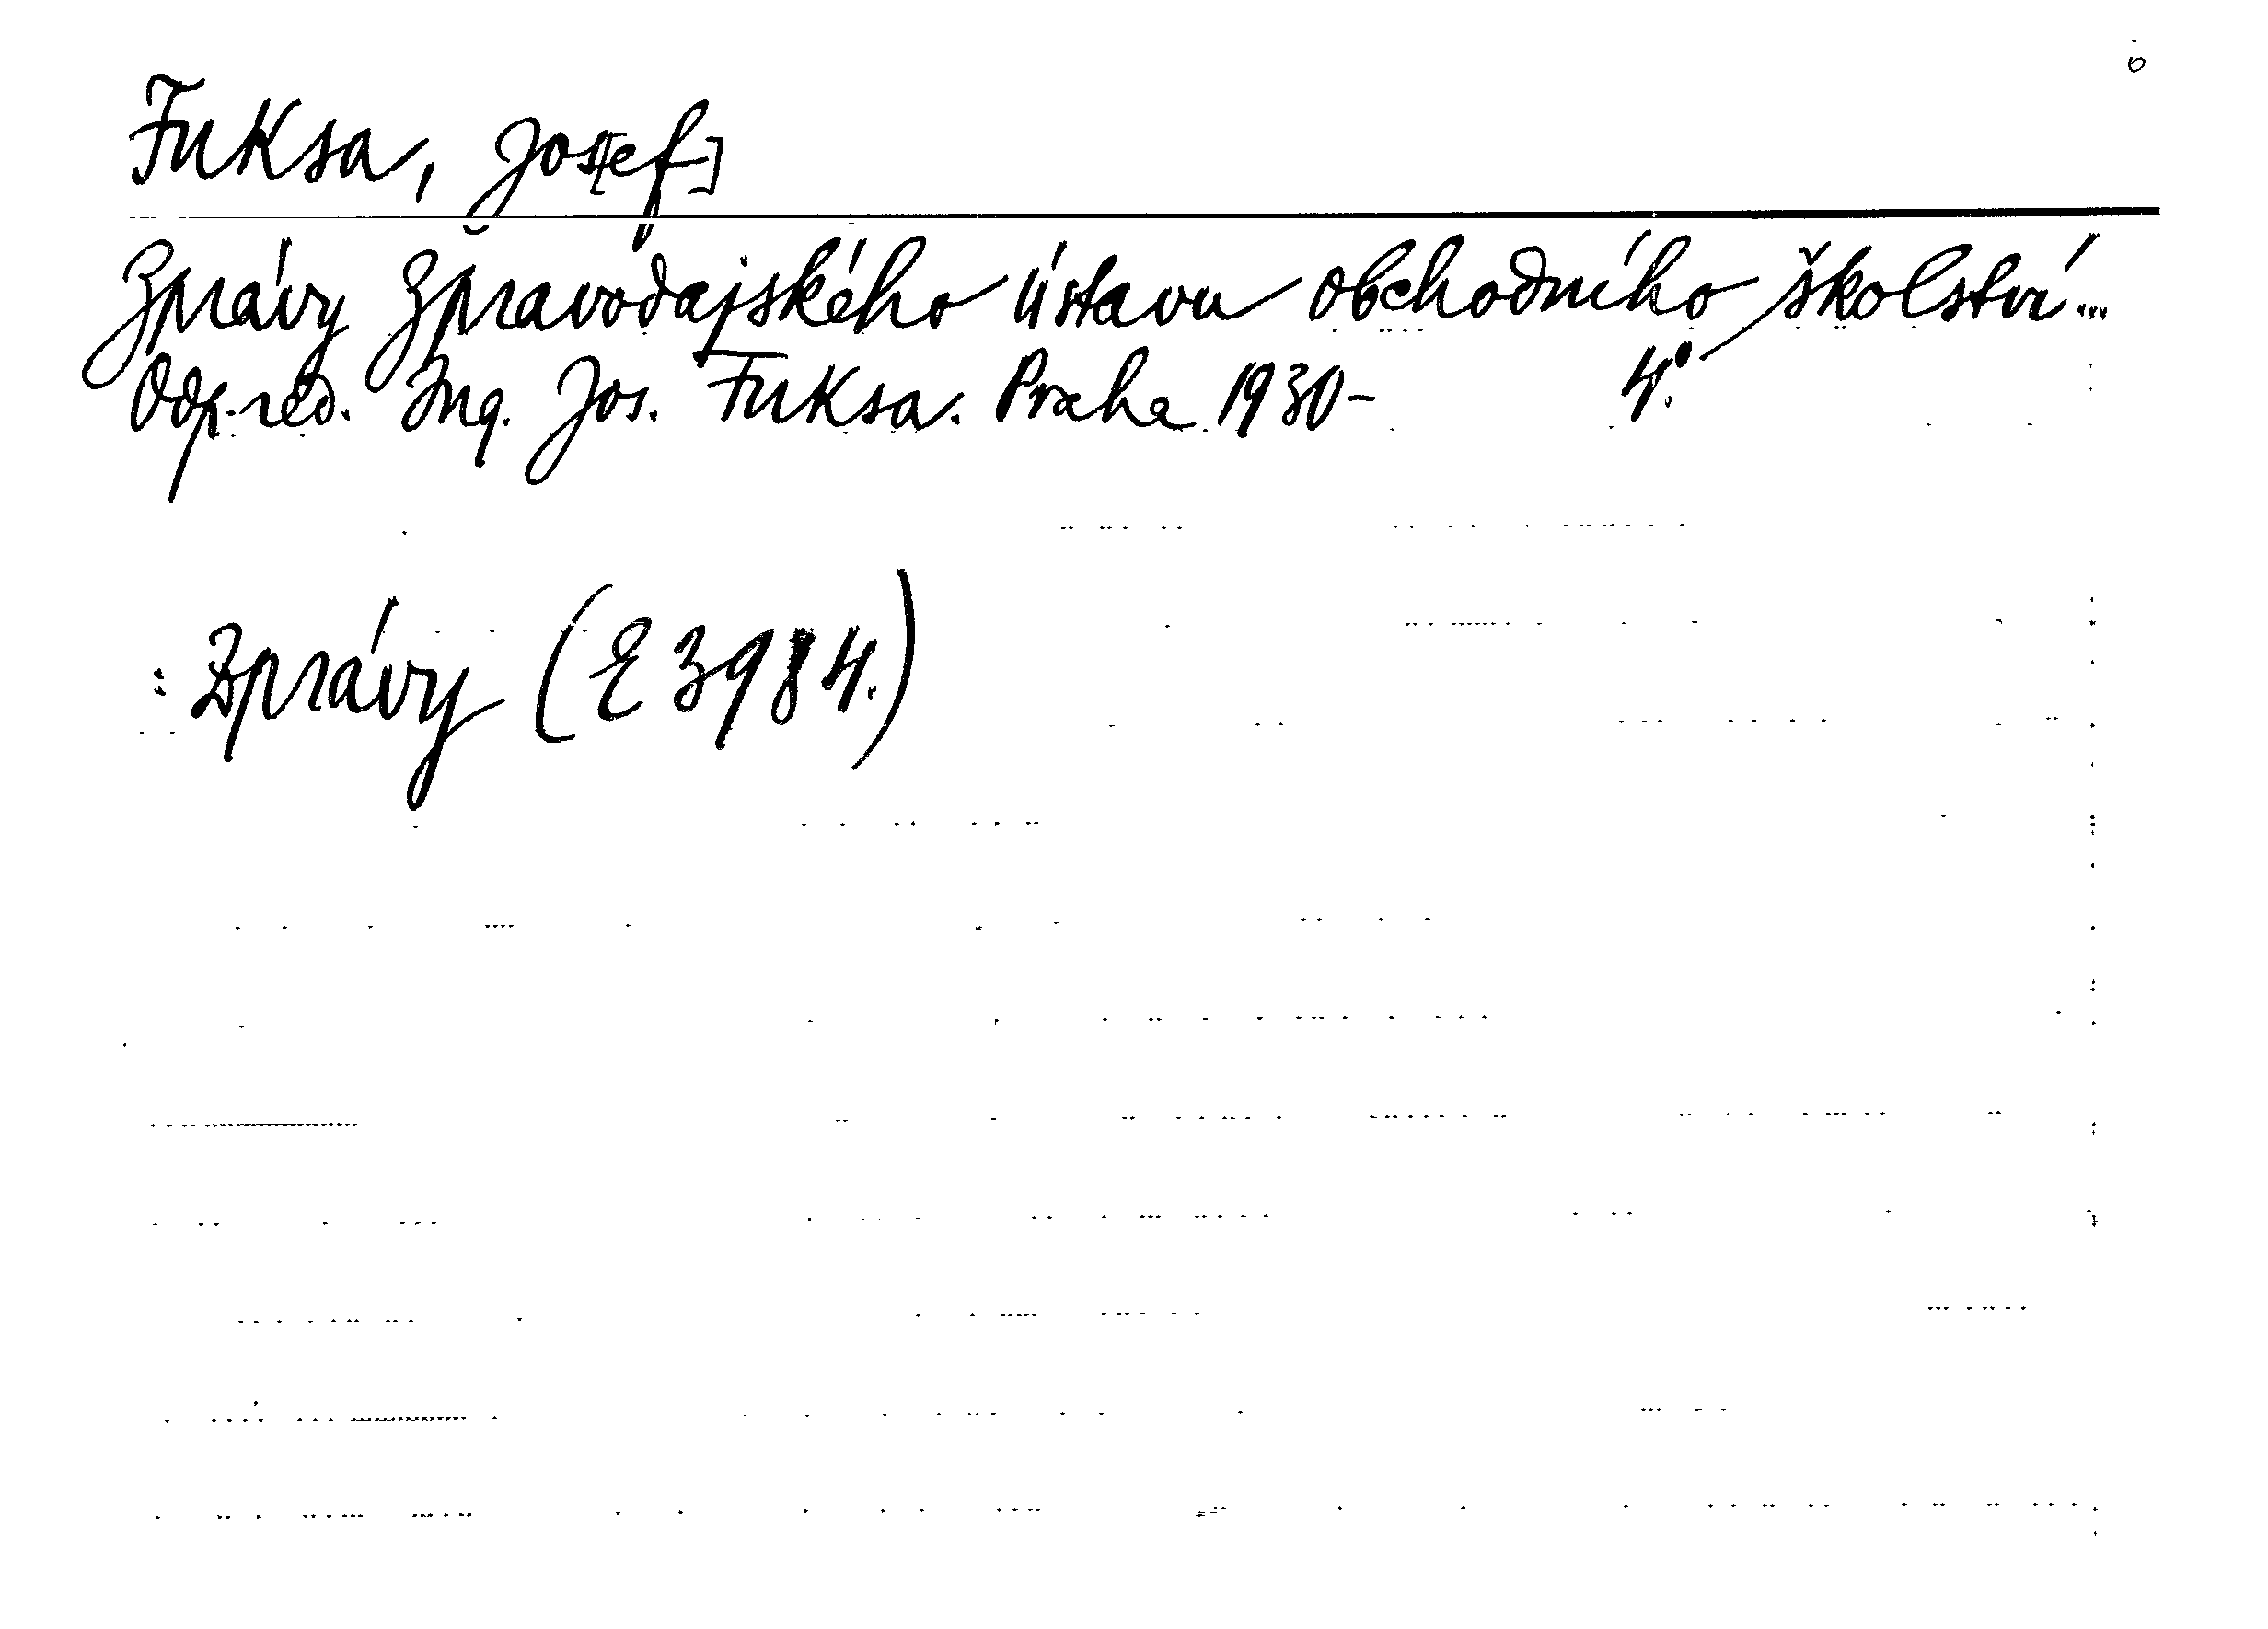 Fuksa, Jos[ef]
Zprávy Zpravodajského ústavu obchodního školství...
Odp. red. Ing. Jos. Fuksa. Praha 1930- 4°.
: Zprávy (E 3984.)